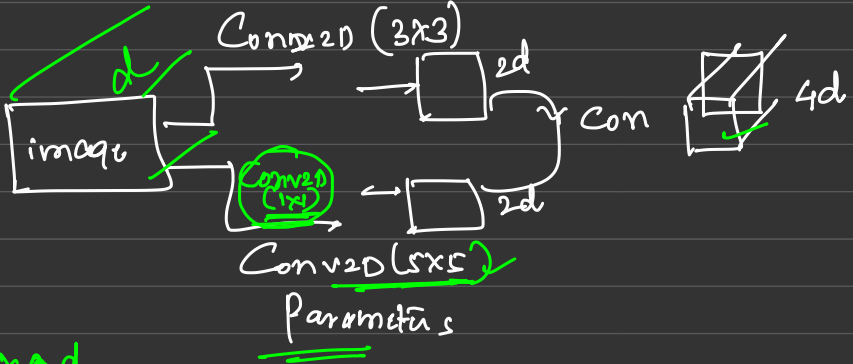 Conv2D (3x3)
d
2d
image
Con
4d
Conv2D
(1x1)
2d
Conv2D(5x5)
Parameters